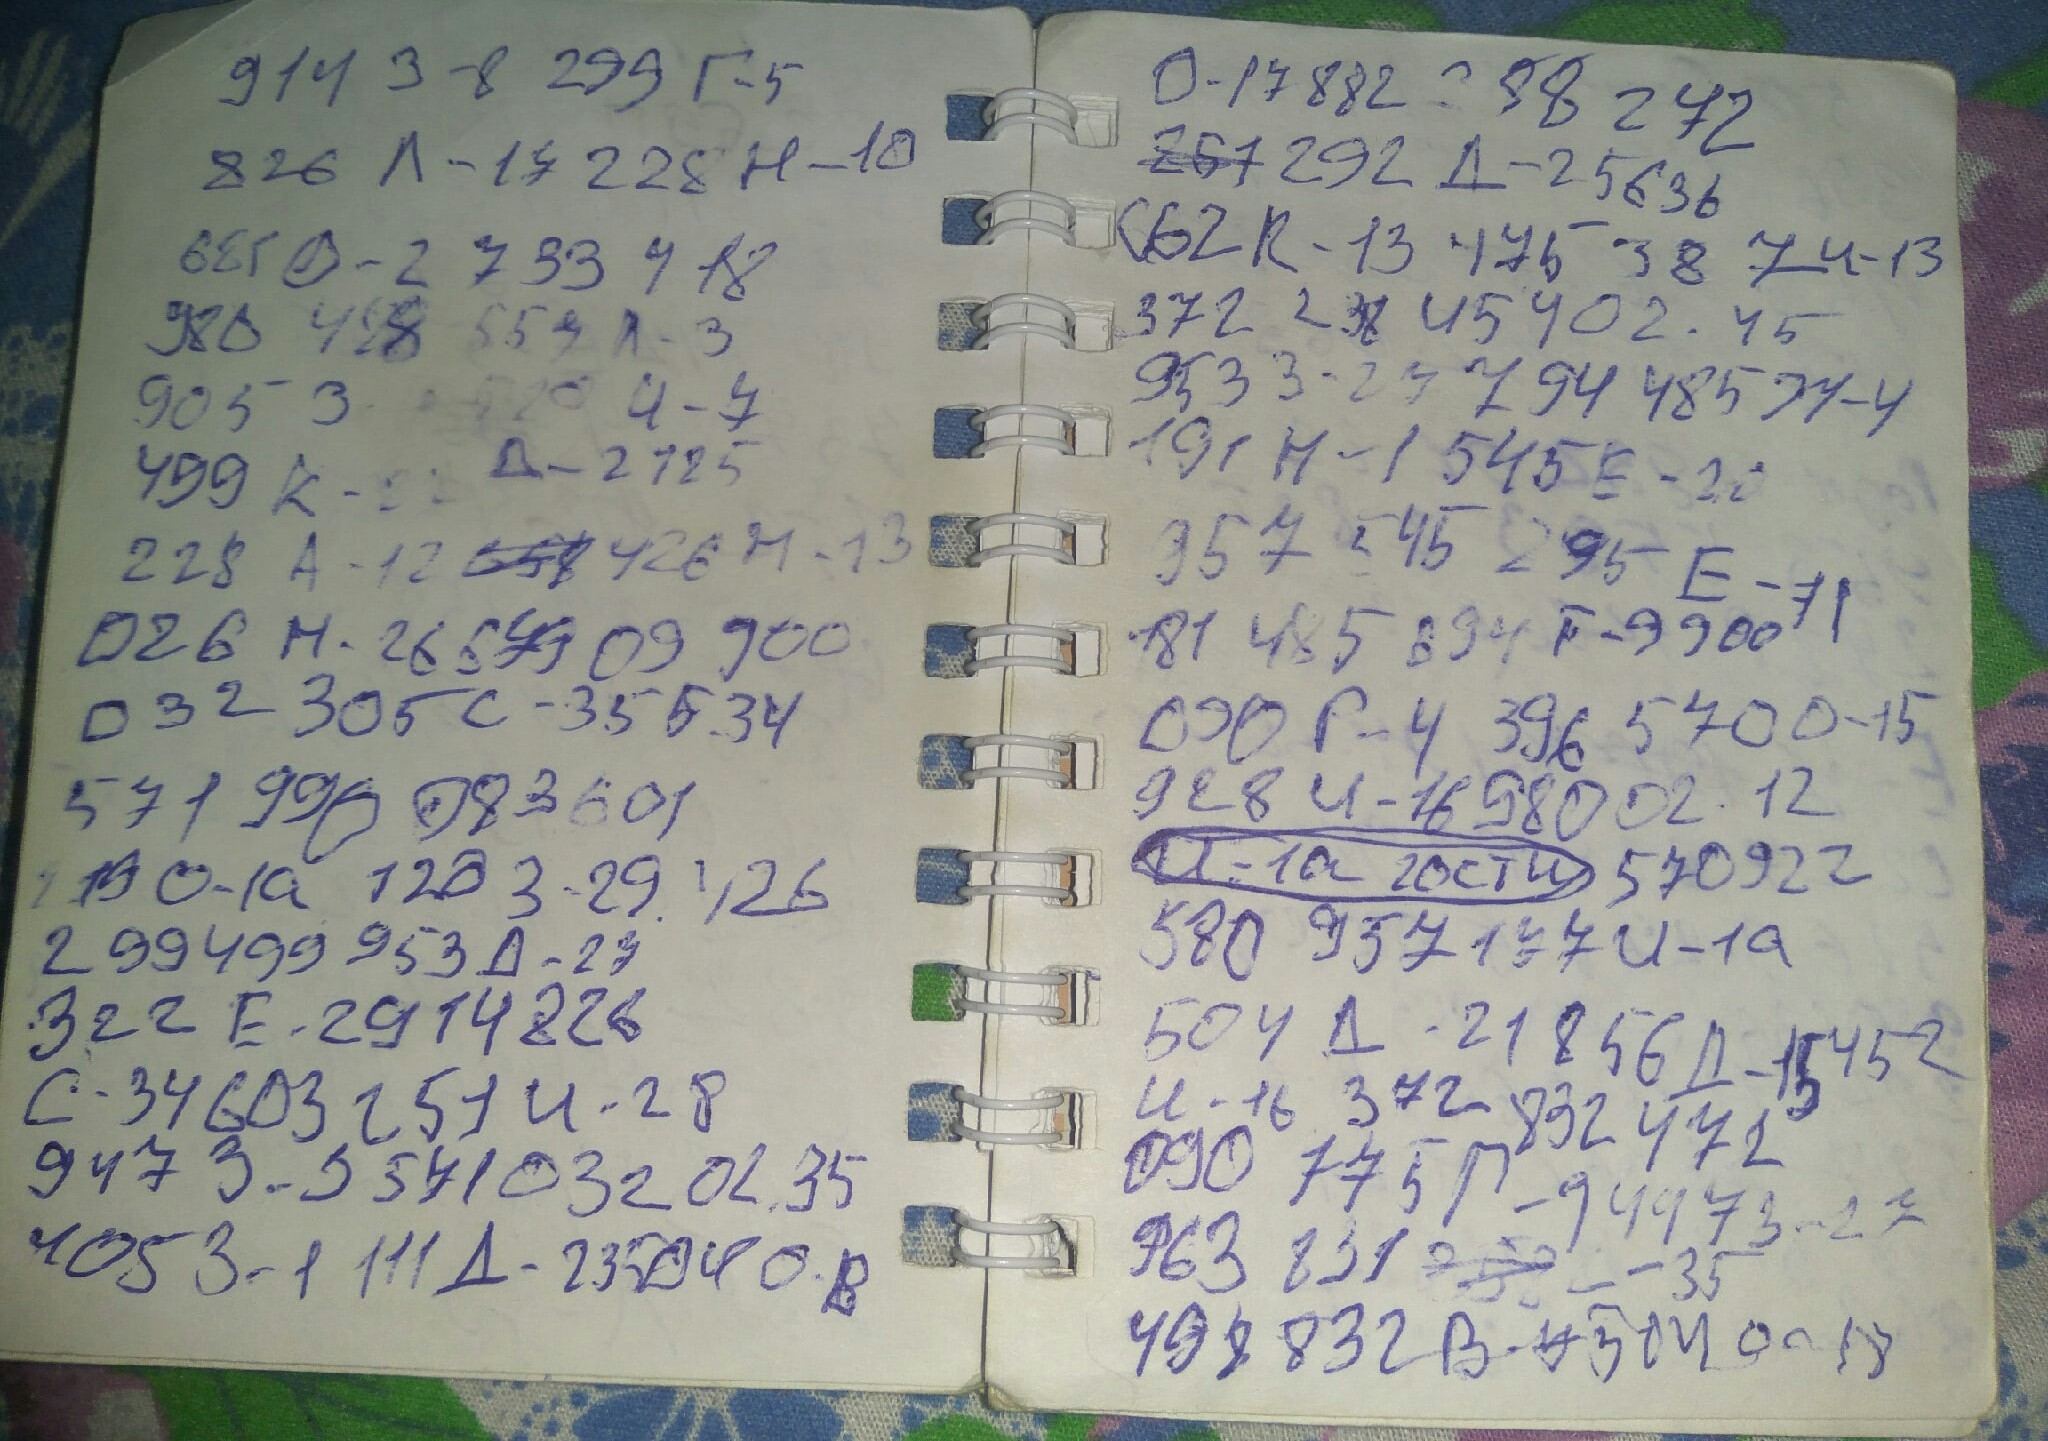 914 З-8 299 Г-5
826 Л-17 228 Н-10
685 О-2 733 418
980 428 559 Л-3
905 З И-7
499 К- Д-2125
228 А-12 426 Н-13
026 Н-26 549 09 900
032 305 С-35 Б.34
571 990 083 601
190 О-1а 120 З-29. 426
299499 953 Д-27
322 Е-29 14 826
С-34 603 251 И-28
947 З-3 571 032 02.35
405 З-1 111 Д-235040-В
О-17 882 98 242
292 Д-25636
662 К-13 475 38 7 И-13
372 45402.45
953 З-27 794 485 974-4
191 Н-1 545 Е-20
957 545 295 Е-71
181 485 894 Г-9 900
090 Г-4 396 5700-15
928 И-16 980 02.12
И-1а гости 570922
580 957 177 И-1а
504 Д-21 856 Д-15 452
И-16 372 832 472
090 775 П-9 4497 З-27
963 831 -35
498 832 В- 504 0 18